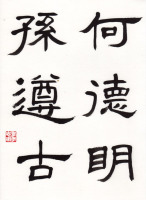 何德明
孫遵古